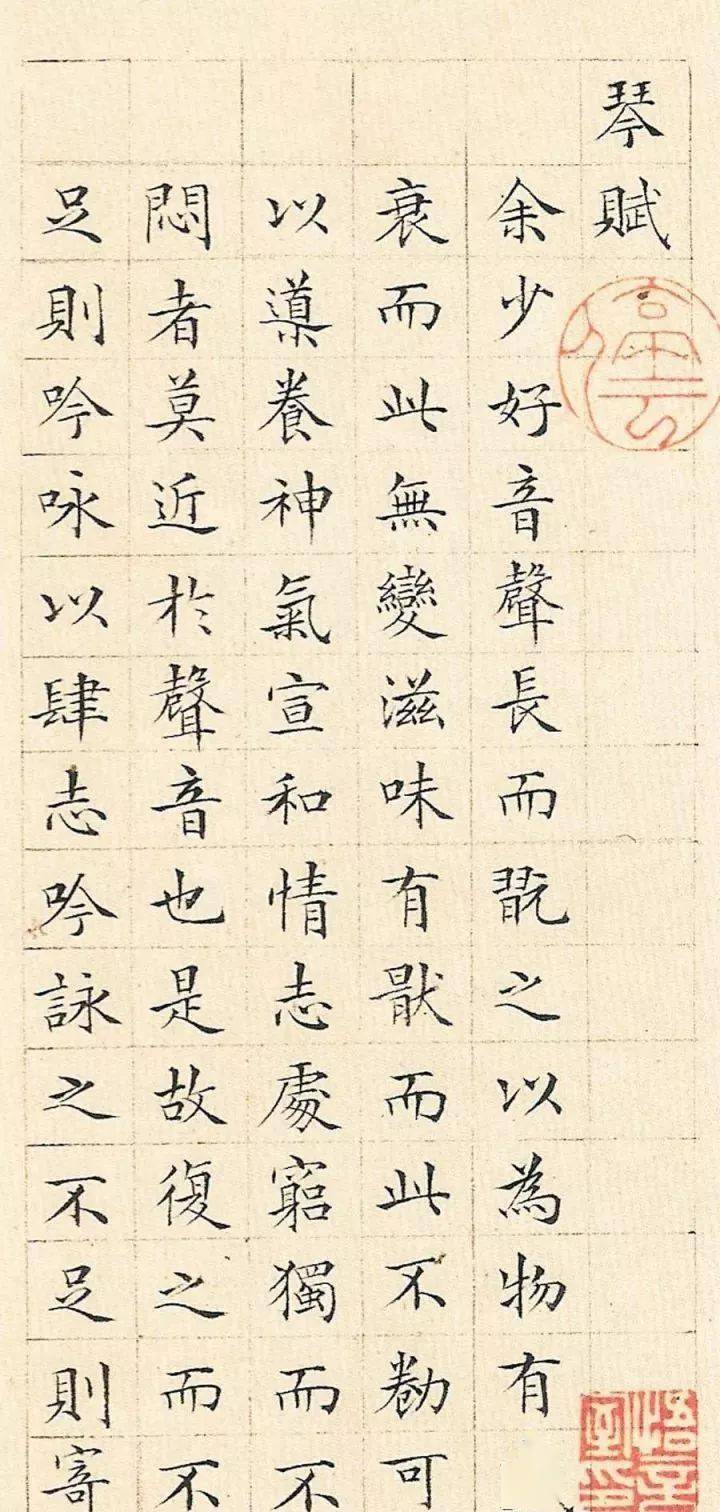 琴賦
余少好音聲長而翫之以為物有
衰而此無變滋味有猒而此不勌可
以導養神氣宣和情志處窮獨而不
悶者莫近於聲音也是故復之而不
足則吟咏以肆志吟詠之不足則寄